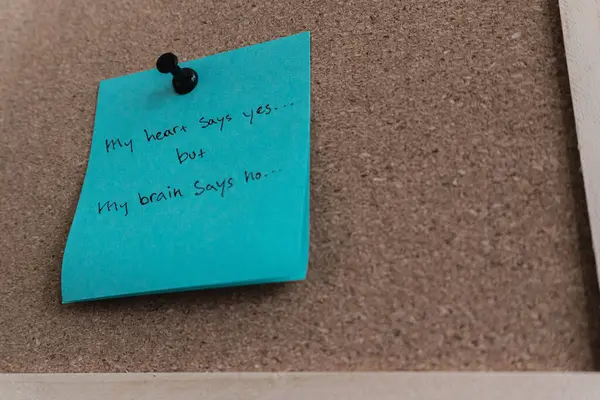 My heart says yes...
but
My brain says no...